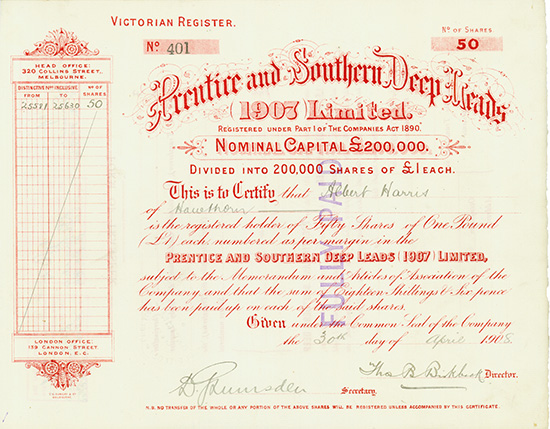 VICTORIAN REGISTER.
No 401
No OF SHARES
50
HEAD OFFICE:
320 COLLINS STREET,
MELBOURNE.
DISTINCTIVE Nos INCLUSIVE
No OF SHARES
FROM TO
25581 25630 50
Prentice and Southern Deep Leads
(1907) Limited.
REGISTERED UNDER PART I OF THE COMPANIES ACT 1890.
NOMINAL CAPITAL £200,000.
DIVIDED INTO 200,000 SHARES OF £1 EACH.
This is to Certify that Albert Harris
of Hawthorn
is the registered holder of Fifty Shares of One Pound
(£1) each, numbered as per margin in the
PRENTICE AND SOUTHERN DEEP LEADS (1907) LIMITED,
subject to the Memorandum and Articles of Association of the
Company, and that the sum of Eighteen Shillings & Six pence
has been paid up on each of the said shares.
Given under the Common Seal of the Company
the 30th day of April 1908.
FULLY PAID
LONDON OFFICE:
139 CANNON STREET,
LONDON, E.C.
Director.
Secretary.
N.B. NO TRANSFER OF THE WHOLE OR ANY PORTION OF THE ABOVE SHARES WILL BE REGISTERED UNLESS ACCOMPANIED BY THIS CERTIFICATE.